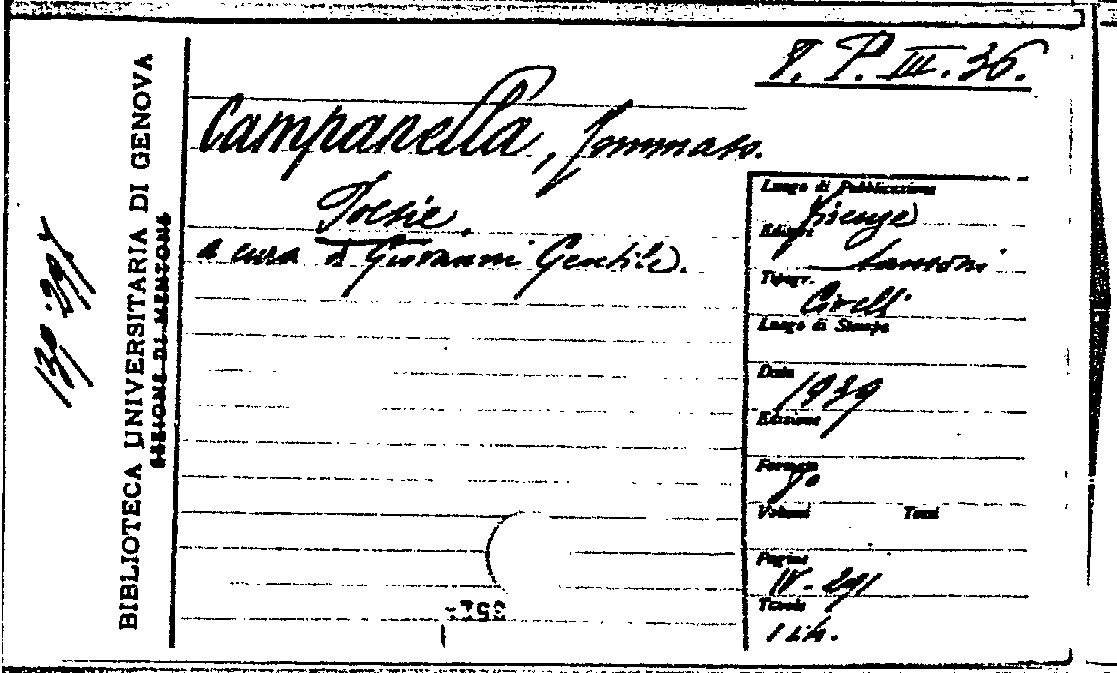 T. P. III. 36.
Campanella, Tommaso.
Poesie.
a cura di Giovanni Gentile.
BIBLIOTECA UNIVERSITARIA DI GENOVA
SEZIONE DI MENTONE
Luogo di Pubblicazione
Firenze
Editore
Sansoni
Tipogr.
Civelli
Luogo di Stampa
Data
1939
Edizione
Formato
8°
Volumi Tomi
Pagine
IV-291
Tavole